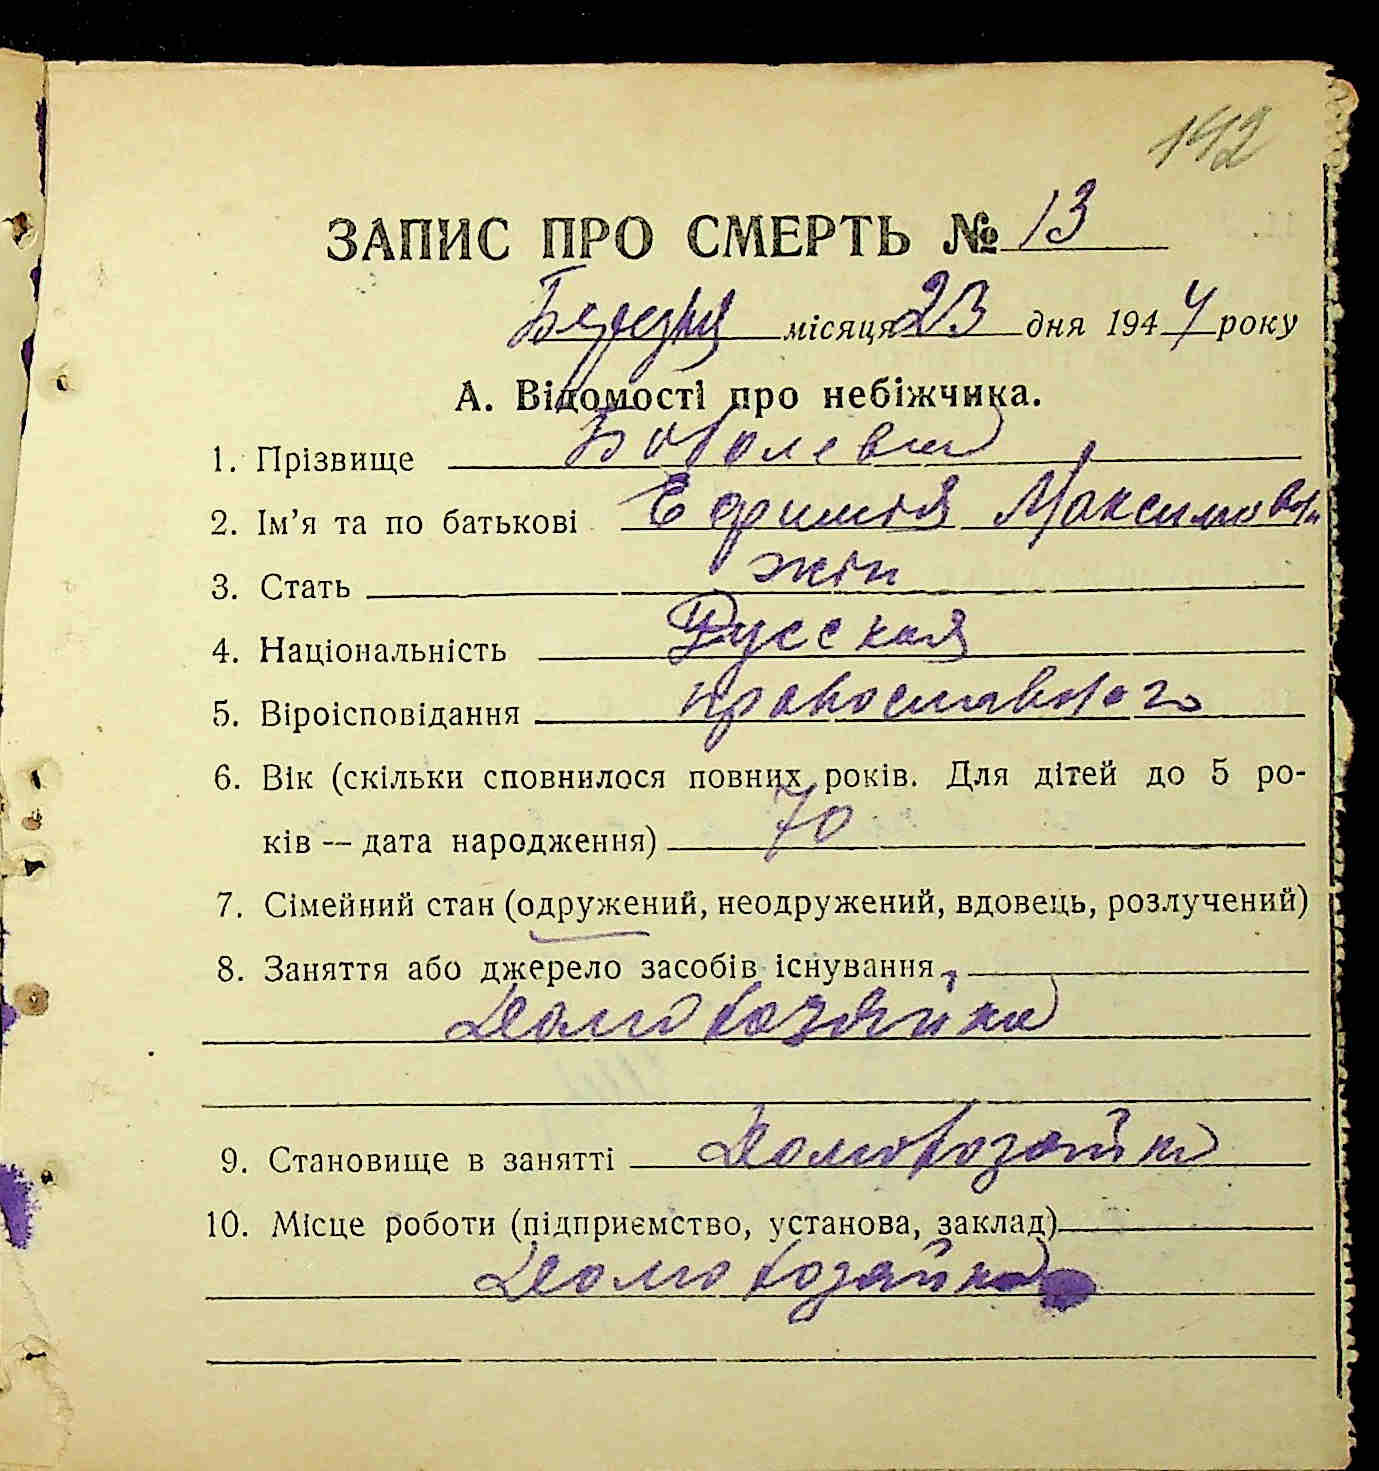 192
ЗАПИС ПРО СМЕРТЬ № 13
Березня місяця 23 дня 1944 року
А. Відомості про небіжчика.
1. Прізвище Боболева
2. Ім’я та по батькові Ефимія Максимовна
3. Стать жін
4. Національність Русская
5. Віроісповідання православного
6. Вік (скільки сповнилося повних років. Для дітей до 5 ро-
ків — дата народження) 70
7. Сімейний стан (одружений, неодружений, вдовець, розлучений)
8. Заняття або джерело засобів існування
Домохозяйка
9. Становище в занятті Домохозяйка
10. Місце роботи (підприємство, установа, заклад)
Домохозяйка